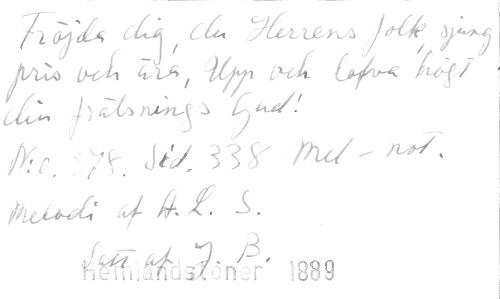 Fröjda dig, du Herrens folk, sjung
pris och ära, Upp och lofva högt
din frälsnings Gud!
N:o. 378. Sid. 338 Mel-not.
Melodi af A. L. S.
Satt af J. B.
Hemlandstoner 1889